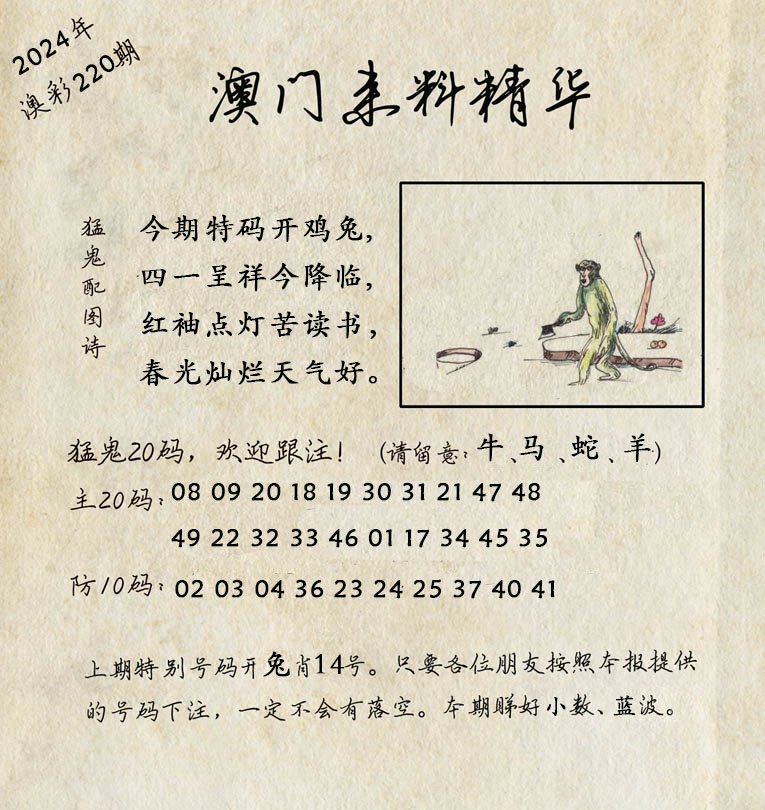 2024年
澳彩220期
澳门来料精华
猛鬼配图诗
今期特码开鸡兔，
四一呈祥今降临，
红袖点灯苦读书，
春光灿烂天气好。
猛鬼20码，欢迎跟注！（请留意：牛、马、蛇、羊）
主20码：08 09 20 18 19 30 31 21 47 48
49 22 32 33 46 01 17 34 45 35
防10码：02 03 04 36 23 24 25 37 40 41
上期特别号码开兔肖14号。只要各位朋友按照本报提供
的号码下注，一定不会有落空。本期睇好小数、蓝波。